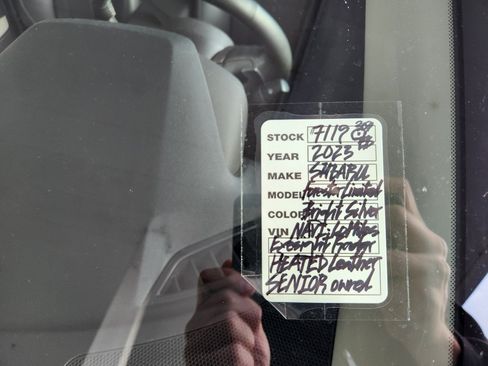 STOCK 7119
YEAR 2023
MAKE SUBARU
MODEL Forester Limited
COLOR Bright Silver
VIN NAVI
HEATED Leather
SENIOR owned